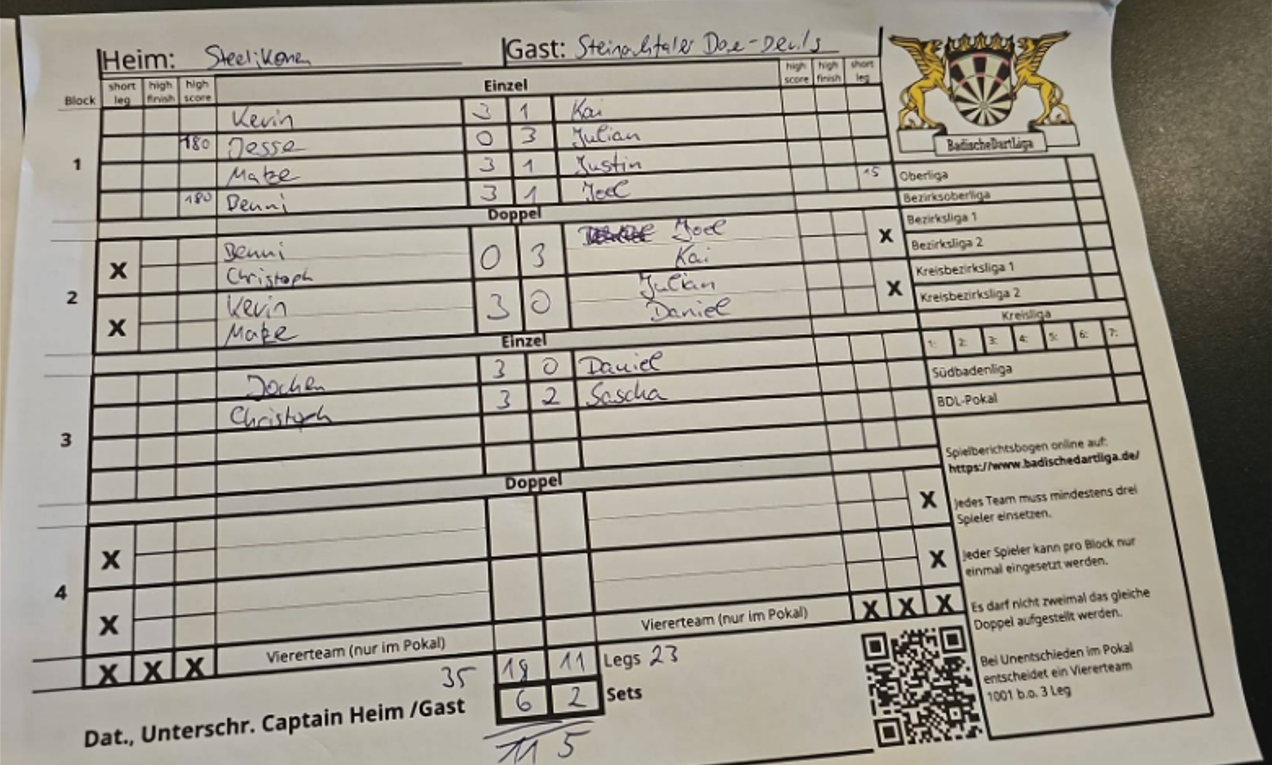 Heim: Steelikonen Gast: Steinachtaler Doe-Devils
Block short leg high finish high score Einzel high score high finish short leg
BadischeDartLiga
1
Kevin 3 1 Kai
180 Jesse 0 3 Julian
Matze 3 1 Justin
180 Denni 3 1 Joel 15
Doppel
2
X Denni 0 3 Joel X
Christoph Kai
X Kevin 3 0 Julian X
Matze Daniel
Einzel
3
Jochen 3 0 Daniel
Christoph 3 2 Sascha
Doppel
4
X X
X X
Vierterteam (nur im Pokal) Vierterteam (nur im Pokal)
X X X X X X
35 18 11 Legs 23
6 2 Sets
Dat., Unterschr. Captain Heim /Gast
11 5
Oberliga
Bezirksoberliga
Bezirksliga 1
Bezirksliga 2
Kreisbezirksliga 1
Kreisbezirksliga 2
Kreisliga
1: 2: 3: 4: 5: 6: 7:
Südbadenliga
BDL-Pokal
Spielberichtsbogen online auf:
https://www.badischedartliga.de/
Jedes Team muss mindestens drei
Spieler einsetzen.
Jeder Spieler kann pro Block nur
einmal eingesetzt werden.
Es darf nicht zweimal das gleiche
Doppel aufgestellt werden.
Bei Unentschieden im Pokal
entscheidet ein Viererteam
1001 b.o. 3 Leg